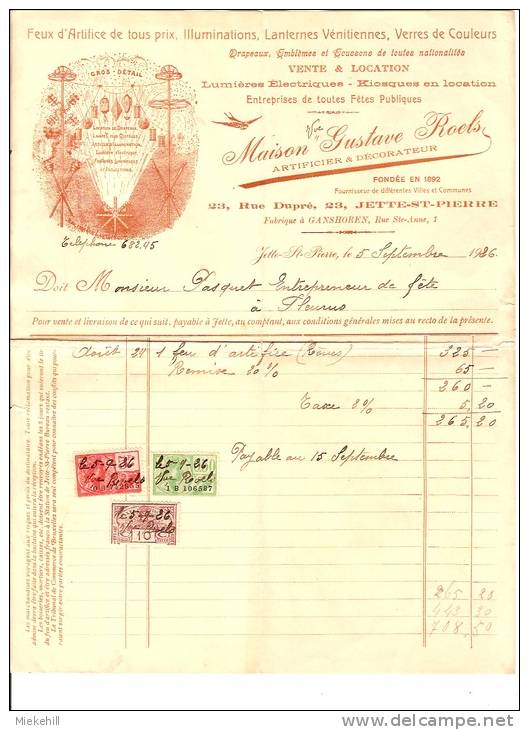 Feux d'Artifice de tous prix, Illuminations, Lanternes Vénitiennes, Verres de Couleurs
Drapeaux, Emblèmes et Ecussons de toutes nationalités
VENTE & LOCATION
Lumières Électriques - Kiosques en location
Entreprises de toutes Fêtes Publiques
GROS - DÉTAIL
LOCATION DE DRAPEAUX
Vve
Maison Gustave Roels
ARTIFICIER & DÉCORATEUR
FONDÉE EN 1892
Fournisseur de différentes Villes et Communes
23, Rue Dupré, 23, JETTE-ST-PIERRE
Fabrique à GANSHOREN, Rue Ste-Anne, 1
Téléphone 682,45
Jette-St-Pierre, le 5 Septembre 1926.
Doit Monsieur Pasquet Entrepreneur de fête
à Fleurus
Pour vente et livraison de ce qui suit, payable à Jette, au comptant, aux conditions générales mises au recto de la présente.
Août 21 1 feu d'artifice (Roues) 325 —
Remise 20 % 65 —
260 —
Taxe 2 % 5,20
265,20
Payable au 15 Septembre
le 5-9-26
Vve Roels
le 5-9-26
Vve Roels
1 B 106587
le 5-9-26
Vve Roels
10
265 20
443 30
708,50
Les marchandises voyagent aux risques et périls du destinataire. Toute réclamation pour être
Le Tribunal de Commerce de Bruxelles sera seul compétent pour connaître des conflits qui pour-
Miekehill
www.delcampe.net